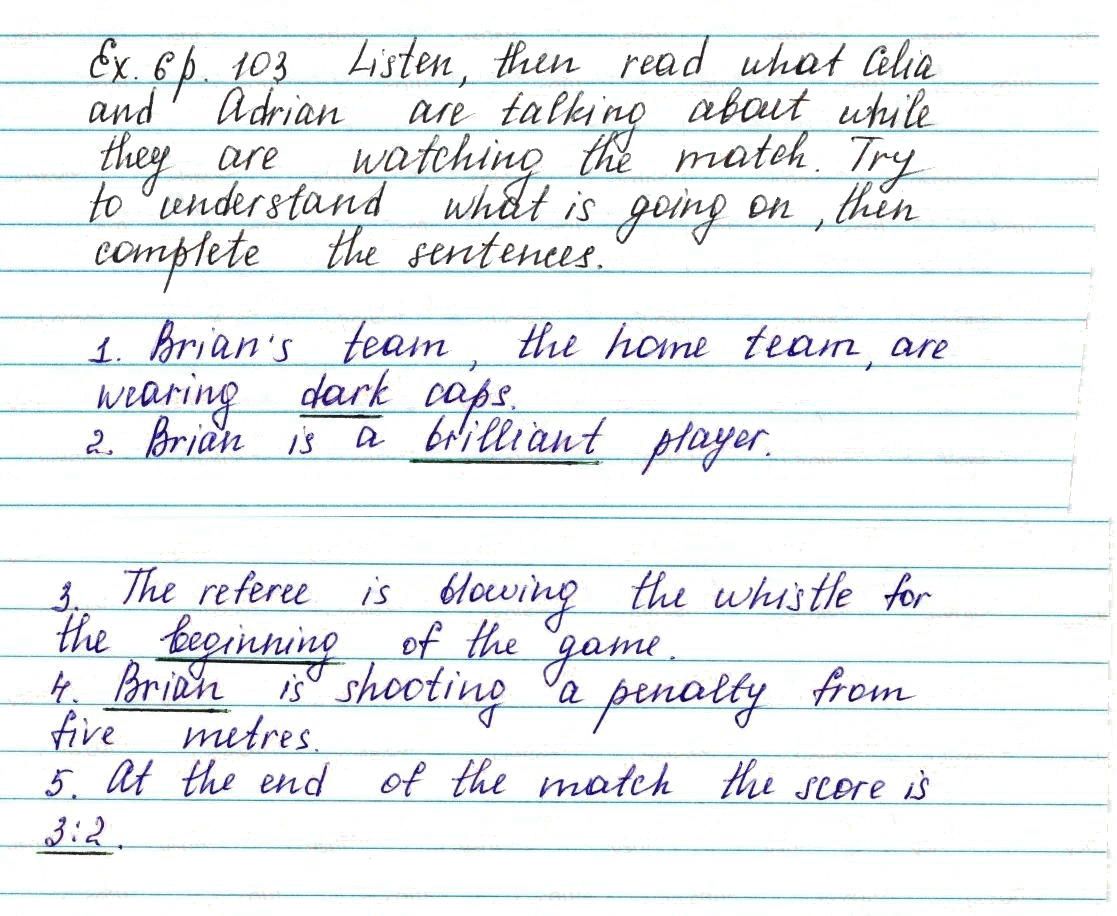 Ex. 6 p. 103 Listen, then read what Celia
and Adrian are talking about while
they are watching the match. Try
to understand what is going on, then
complete the sentences.
1. Brian's team, the home team, are
wearing dark caps.
2. Brian is a brilliant player.
3. The referee is blowing the whistle for
the beginning of the game.
4. Brian is shooting a penalty from
five metres.
5. At the end of the match the score is
3:2.